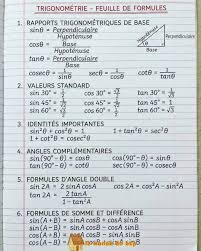 TRIGONOMÉTRIE – FEUILLE DE FORMULES
1. RAPPORTS TRIGONOMÉTRIQUES DE BASE
sinθ = Perpendiculaire / Hypoténuse
cosθ = Base / Hypoténuse
tanθ = Perpendiculaire / Base
Perpendiculaire
Hypoténuse
θ
Base
cosecθ = 1/sinθ secθ = 1/cosθ cotθ = 1/tanθ
2. VALEURS STANDARD
sin 30° = 1/2 cos 30° = √3/2 tan 30° = 1/√3
sin 45° = 1/√2 cos 45° = 1/√2 tan 45° = 1
sin 60° = √3/2 cos 60° = 1/2 tan 60° = √3
3. IDENTITÉS IMPORTANTES
sin²θ + cos²θ = 1 1 + tan²θ = sec²θ
1 + cot²θ = cosec²θ
4. ANGLES COMPLÉMENTAIRES
sin(90°-θ) = cosθ cos(90°-θ) = sinθ
tan(90°-θ) = cotθ
5. FORMULES D'ANGLE DOUBLE
sin 2A = 2 sinA cosA cos 2A = cos²A – sin²A
tan 2A = 2 tanA / 1 – tan²A
6. FORMULES DE SOMME ET DIFFÉRENCE
sin(A+B) = sinAcosB + cosAsinB
sin(A-B) = sinAcosB – cosAsinB